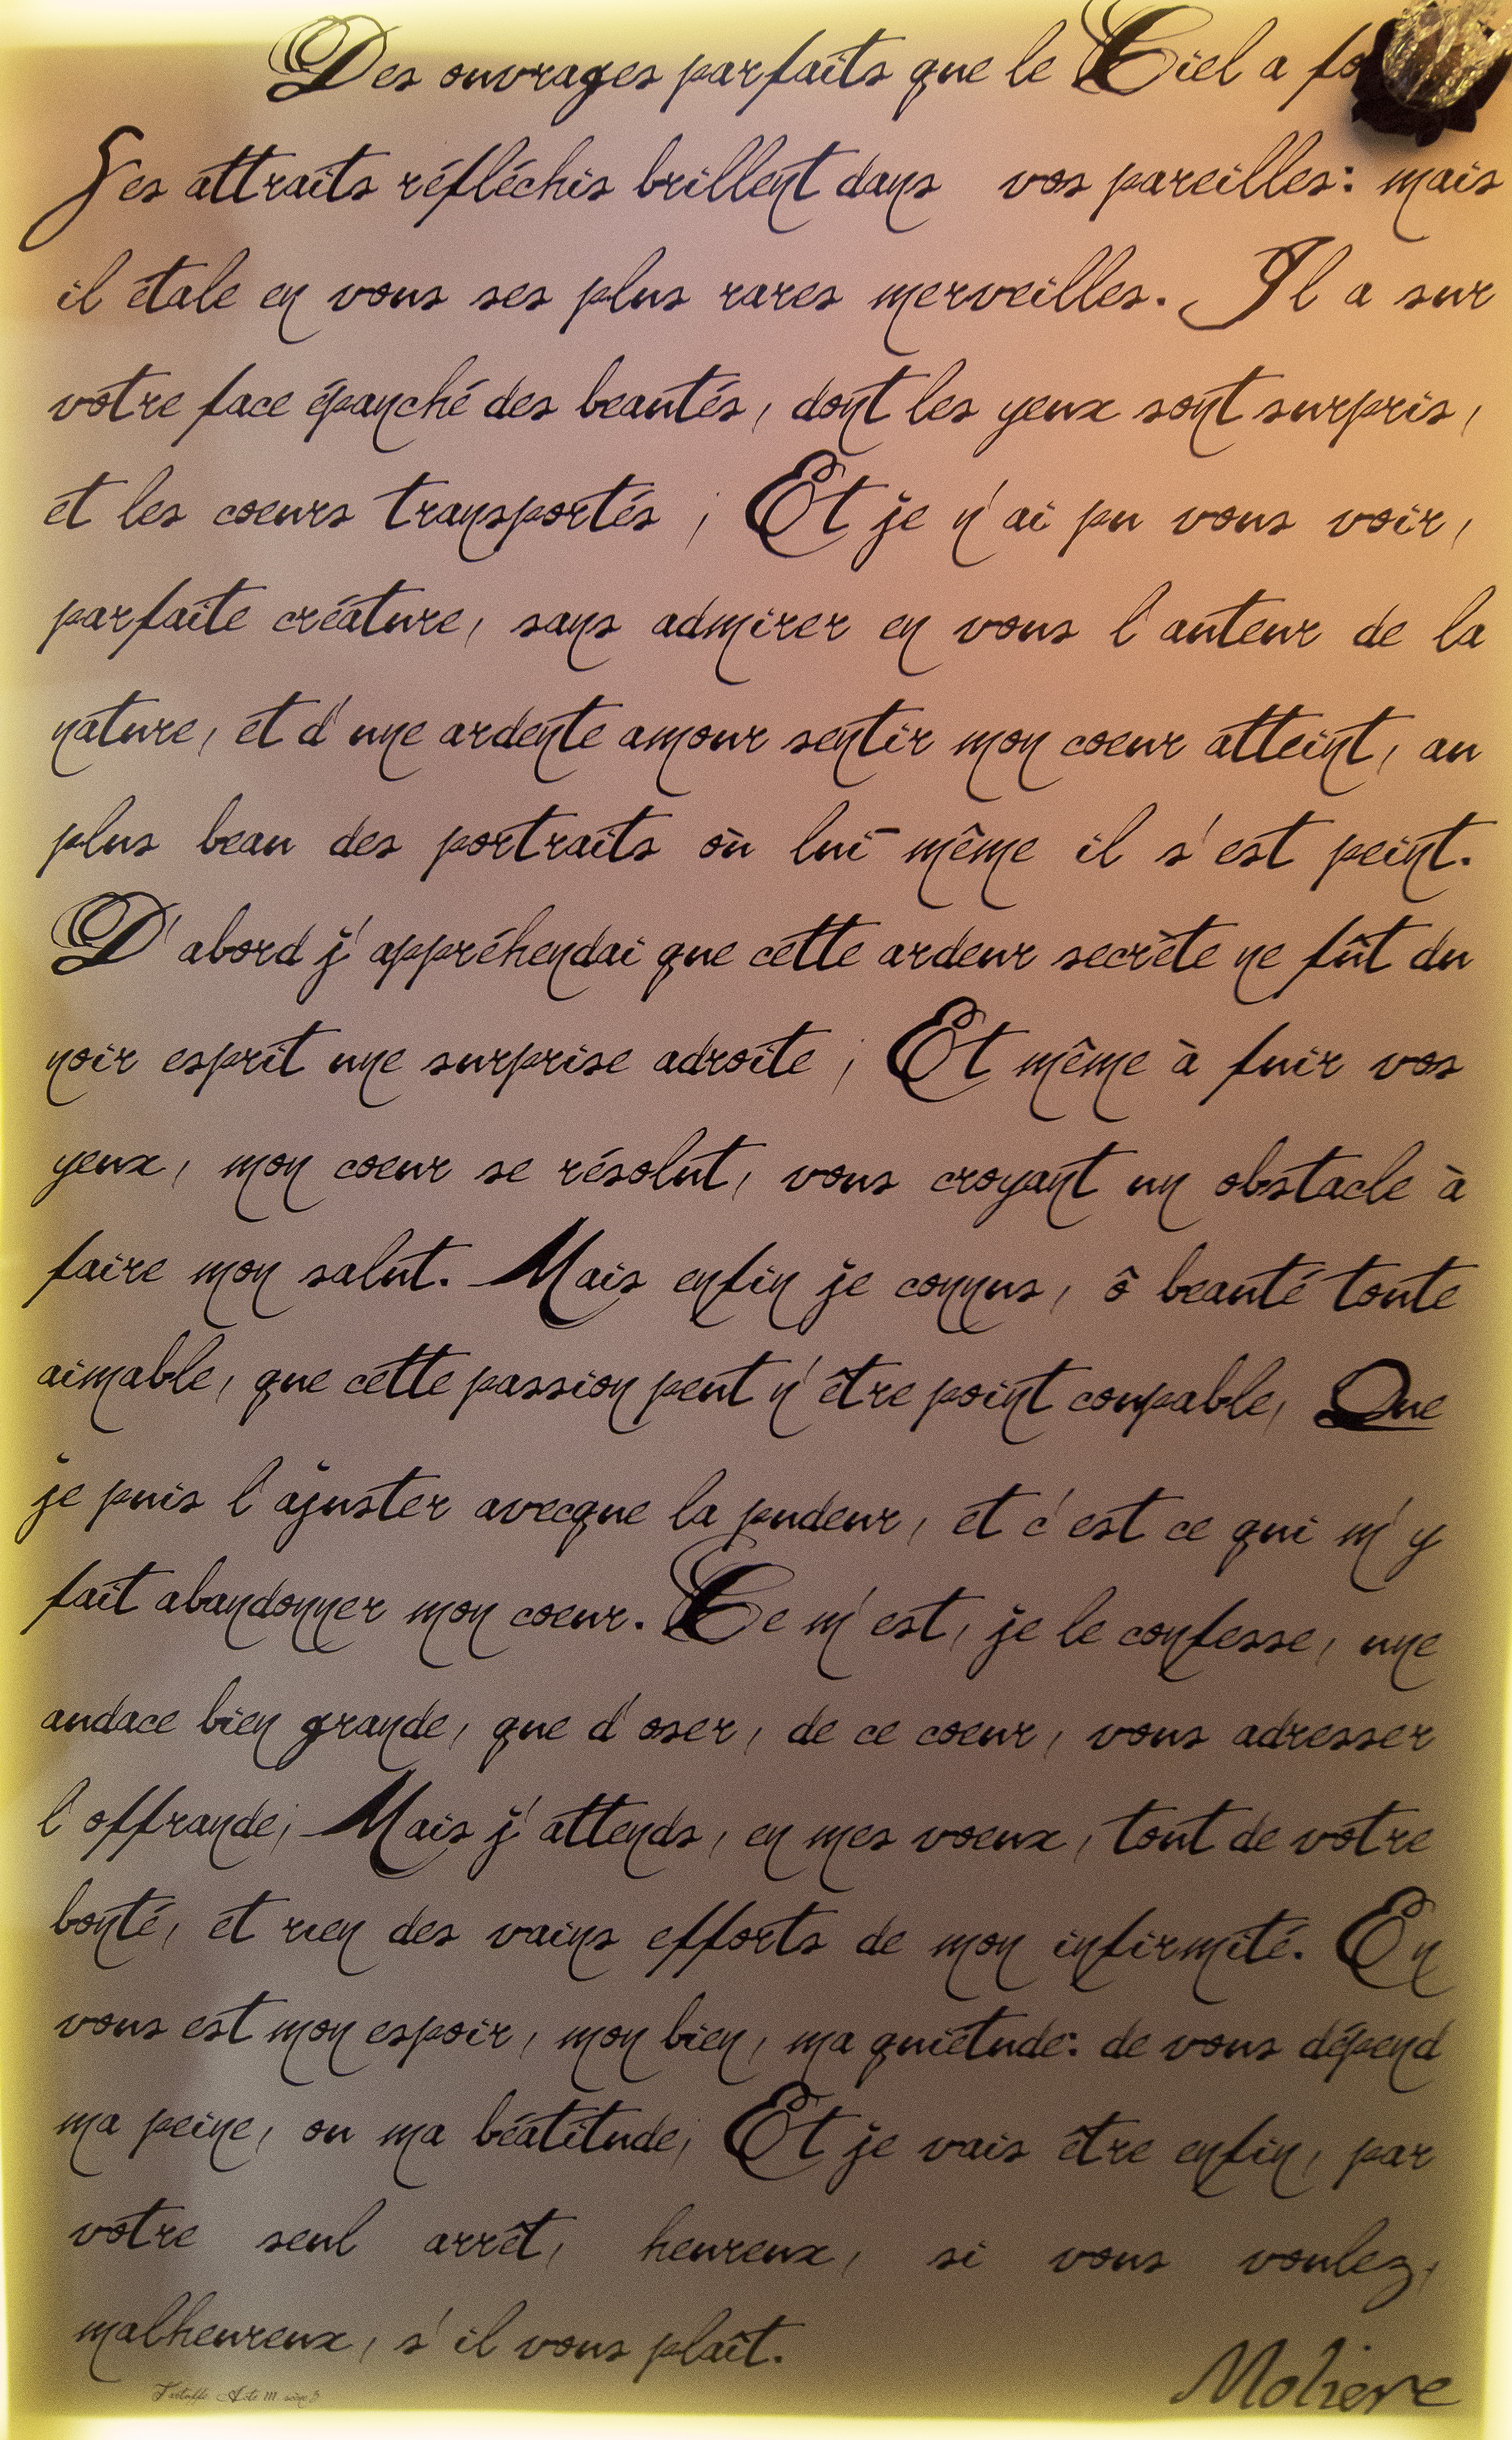 Des ouvrages parfaits que le Ciel a fo
Ses attraits réfléchis brillent dans vos pareilles: mais
il étale en vous ses plus rares merveilles. Il a sur
votre face épanché des beautés, dont les yeux sont surpris,
et les coeurs transportés ; Et je n'ai pu vous voir,
parfaite créature, sans admirer en vous l'auteur de la
nature, et d'une ardente amour sentir mon coeur atteint, au
plus beau des portraits où lui-même il s'est peint.
D'abord j'appréhendai que cette ardeur secrète ne fût du
noir esprit une surprise adroite ; Et même à fuir vos
yeux, mon coeur se résolut, vous croyant un obstacle à
faire mon salut. Mais enfin je connus, ô beauté toute
aimable, que cette passion peut n'être point coupable, Que
je puis l'ajuster avecque la pudeur, et c'est ce qui m'y
fait abandonner mon coeur. Ce m'est, je le confesse, une
audace bien grande, que d'oser, de ce coeur, vous adresser
l'offrande; Mais j'attends, en mes voeux, tout de votre
bonté, et rien des vains efforts de mon infirmité. En
vous est mon espoir, mon bien, ma quiétude: de vous dépend
ma peine, ou ma béatitude; Et je vais être enfin, par
votre seul arrêt, heureux, si vous voulez,
malheureux, s'il vous plaît.
Tartuffe Acte III scène 3
Moliere